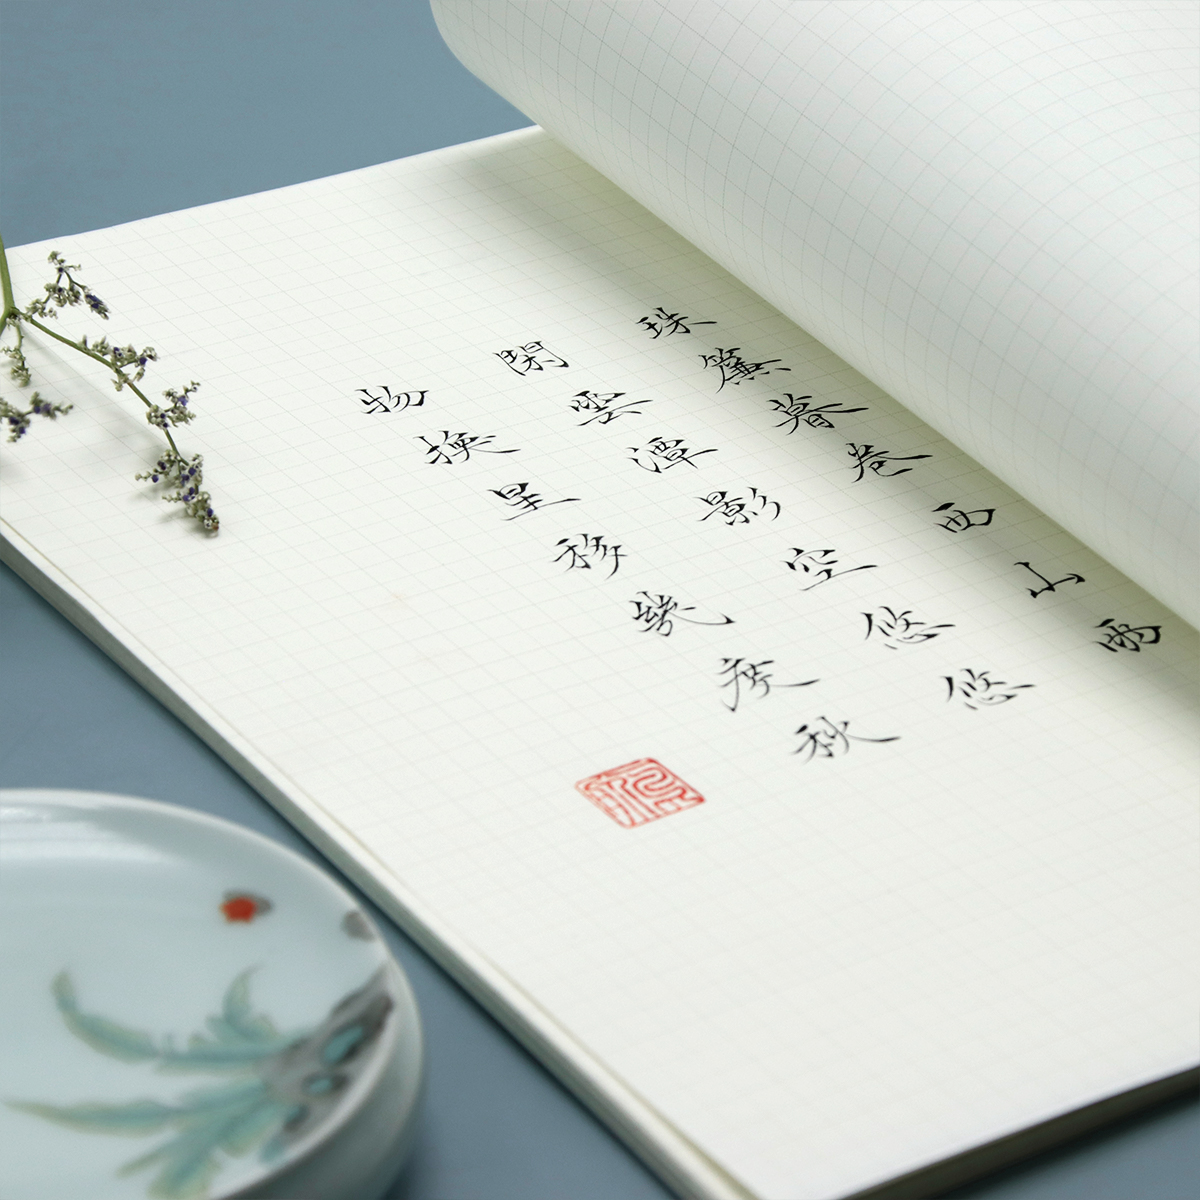 珠簾暮卷西山雨
閑雲潭影空悠悠
物換星移幾度秋